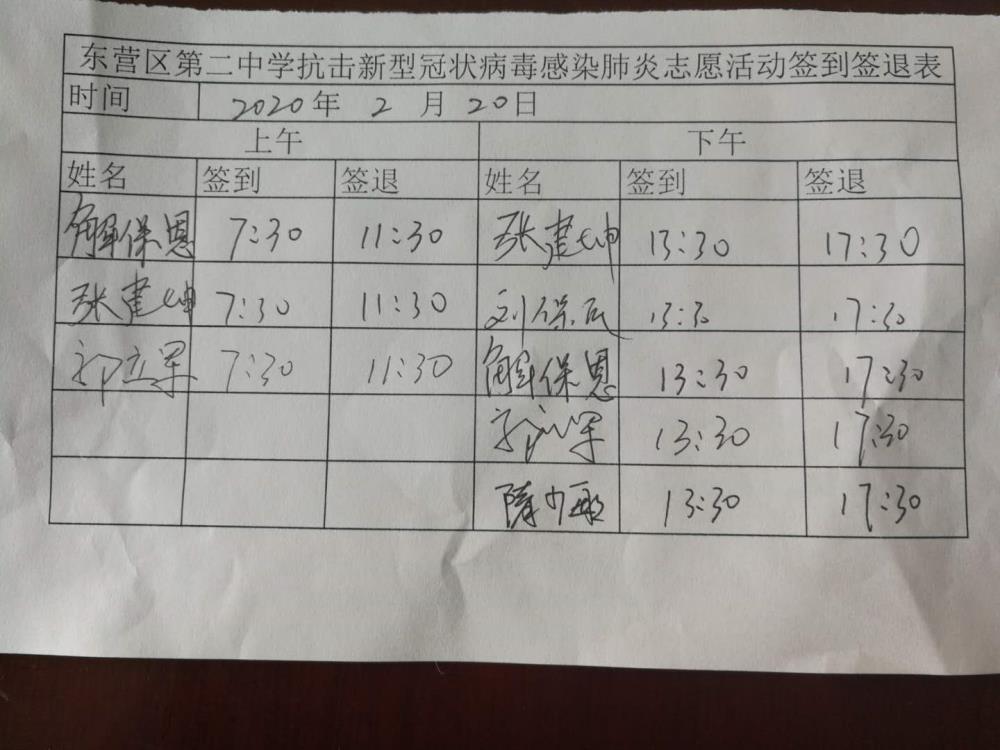 东营区第二中学抗击新型冠状病毒感染肺炎志愿活动签到签退表
时间 2020年 2 月 20日
上午 下午
姓名 签到 签退 姓名 签到 签退
解保恩 7:30 11:30 张建坤 13:30 17:30
张建坤 7:30 11:30 刘保民 13:30 17:30
郭立军 7:30 11:30 解保恩 13:30 17:30
郭立军 13:30 17:30
隋少敏 13:30 17:30